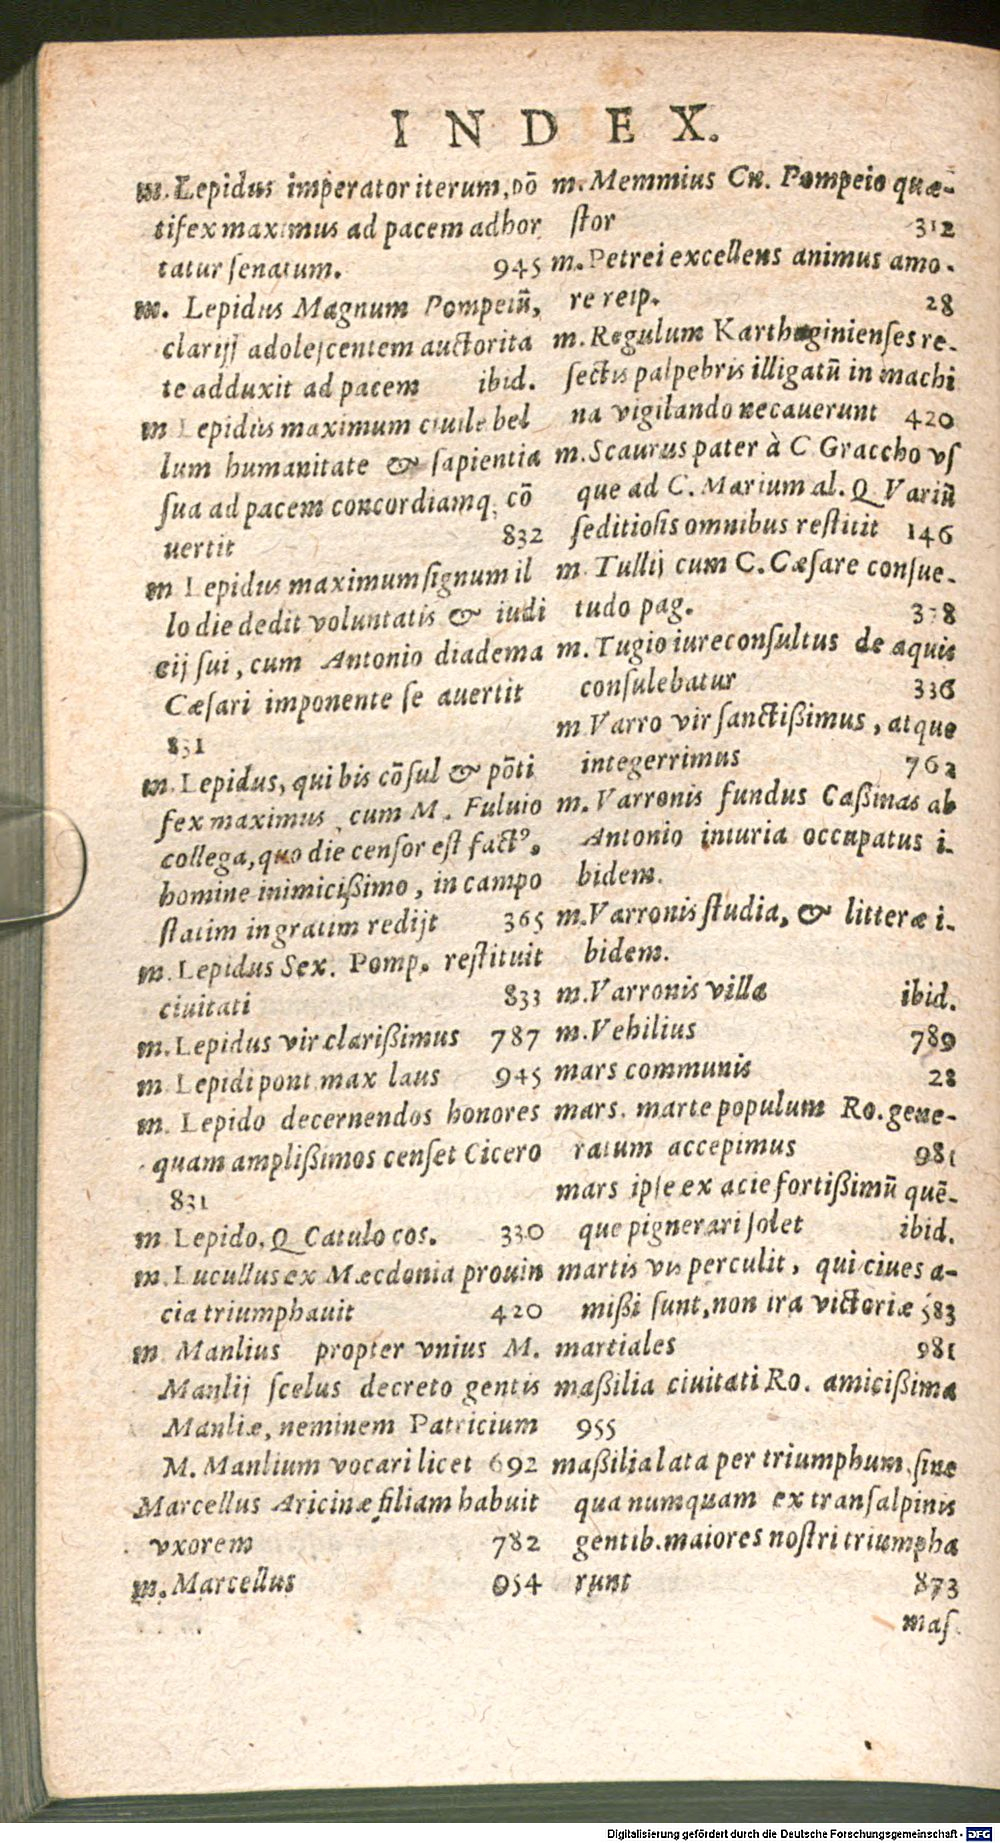 INDEX.
m. Lepidus imperator iterum, pō
tifex maximus ad pacem adhor
tatur senatum. 945
m. Lepidus Magnum Pompeiũ,
clariſſ adoleſcentem auctorita
te adduxit ad pacem ibid.
m Lepidus maximum ciuile bel
lum humanitate & ſapientia
ſua ad pacem concordiamq; cō
uertit 832
m Lepidus maximum ſignum il
lo die dedit voluntatis & iudi
cij ſui, cum Antonio diadema
Cæſari imponente ſe auertit
831
m. Lepidus, qui bis cōſul & pōti
fex maximus, cum M. Fuluio
collega, quo die cenſor eſt fact⁹,
homine inimiciſſimo, in campo
ſtatim in gratim redijt 365
m. Lepidus Sex. Pomp. reſtituit
ciuitati 833
m. Lepidus vir clariſſimus 787
m. Lepidi pont max laus 945
m. Lepido decernendos honores
quam ampliſſimos cenſet Cicero
831
m Lepido, Q Catulo cos. 330
m. Lucullus ex Mæcdonia prouin
cia triumphauit 420
m Manlius propter vnius M.
Manlij ſcelus decreto gentis
Manliæ, neminem Patricium
M. Manlium vocari licet 692
Marcellus Aricinæ filiam habuit
vxorem 782
m. Marcellus 954
m. Memmius Cn. Pompeio quæ-
ſtor 312
m. Petrei excellens animus amo-
re reip. 28
m. Regulum Karthaginienſes re-
ſectis palpebris illigatũ in machi
na vigilando necauerunt 420
m. Scaurus pater à C Graccho vſ
que ad C. Marium al. Q Variũ
ſeditioſis omnibus reſtitit 146
m. Tullij cum C. Cæſare conſue-
tudo pag. 378
m. Tugio iureconſultus de aquis
conſulebatur 336
m Varro vir ſanctiſſimus, atque
integerrimus 762
m. Varronis fundus Caſſinas ab
Antonio iniuria occupatus i-
bidem.
m. Varronis ſtudia, & litteræ i-
bidem.
m. Varronis villa ibid.
m. Vehilius 789
mars communis 28
mars. marte populum Ro. gene-
ratum accepimus 981
mars ipſe ex acie fortiſſimũ quē-
que pignerari ſolet ibid.
martis vis perculit, qui ciues a-
miſſi ſunt, non ira victoriæ 583
martiales 981
maſſilia ciuitati Ro. amiciſſima
955
maſſilia lata per triumphum, ſine
qua numquam ex tranſalpinis
gentib. maiores noſtri triumpha
runt 873
maſ
Digitalisierung gefördert durch die Deutsche Forschungsgemeinschaft - DFG